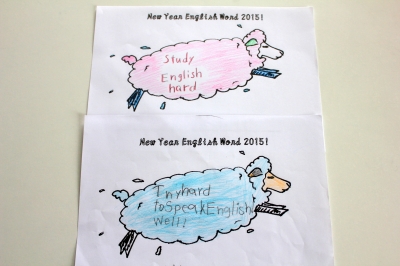 New Year English Word 2015!
Study
English
hard
New Year English Word 2015!
I try hard
to speak English
well!